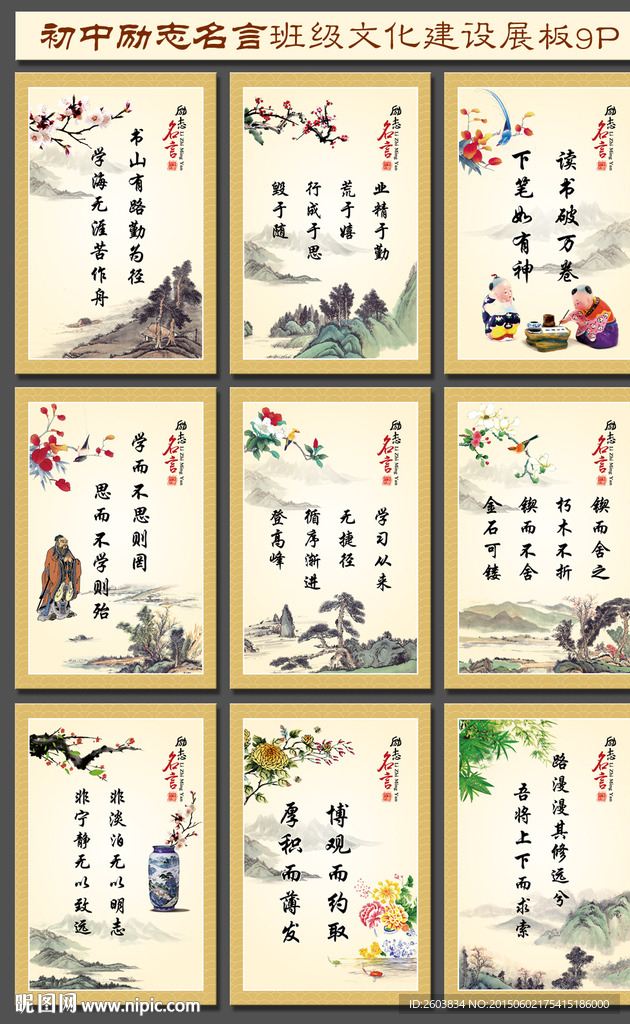 初中励志名言班级文化建设展板9P
励志名言
Li Zhi Ming Yan
书山有路勤为径
学海无涯苦作舟
励志名言
Li Zhi Ming Yan
业精于勤
荒于嬉
行成于思
毁于随
励志名言
Li Zhi Ming Yan
读书破万卷
下笔如有神
励志名言
Li Zhi Ming Yan
学而不思则罔
思而不学则殆
励志名言
Li Zhi Ming Yan
学习从来
无捷径
循序渐进
登高峰
励志名言
Li Zhi Ming Yan
锲而舍之
朽木不折
锲而不舍
金石可镂
励志名言
Li Zhi Ming Yan
非淡泊无以明志
非宁静无以致远
励志名言
Li Zhi Ming Yan
博观而约取
厚积而薄发
励志名言
Li Zhi Ming Yan
路漫漫其修远兮
吾将上下而求索
昵图网 www.nipic.com
ID:2603834 NO:20150602175415186000